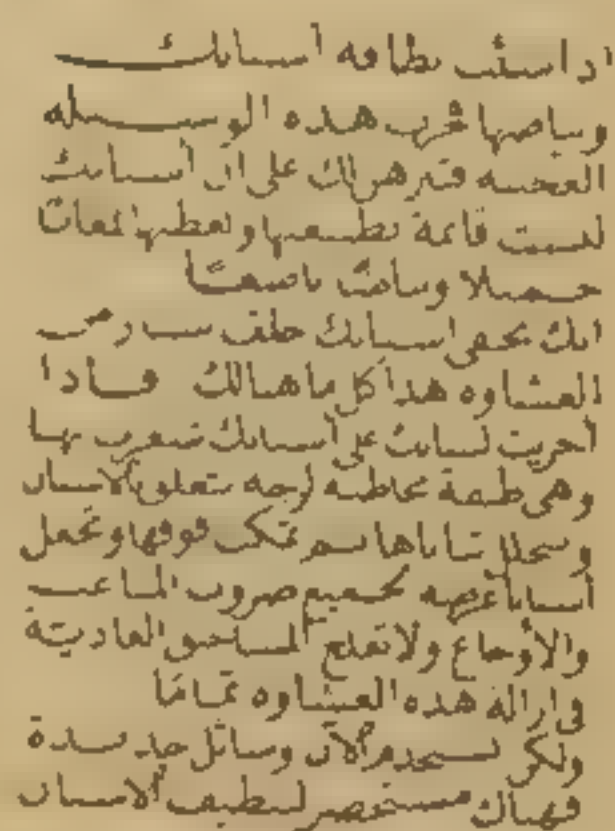 اذا اشئت نظافة أسنانك
وبياضها فجرب هذه الوسيلة
العجيبة فتبرهن لك على ان أسنانك
ليست قاتمة بطبعها وتعطيها لمعانًا
جميلا وبياضًا ناصعًا
انك تخفي اسنانك خلف
الغشاوه هذا كل ما هنالك فاذا
أجريت لسانك على أسنانك تشعر بها
وهي طبقة مخاطية لزجه تتعلق بالاسنان
وتتخلل ثناياها ثم تتكون فوقها وتجعل
أسناننا عرضه لجميع ضروب المتاعب
والأوجاع ولا تفلح المساحيق العادية
في ازالة هذه الغشاوه تمامًا
ولكن تستخدم ألآن وسائل جديدة
فهناك مستحضر لتنظيف ألاسنان